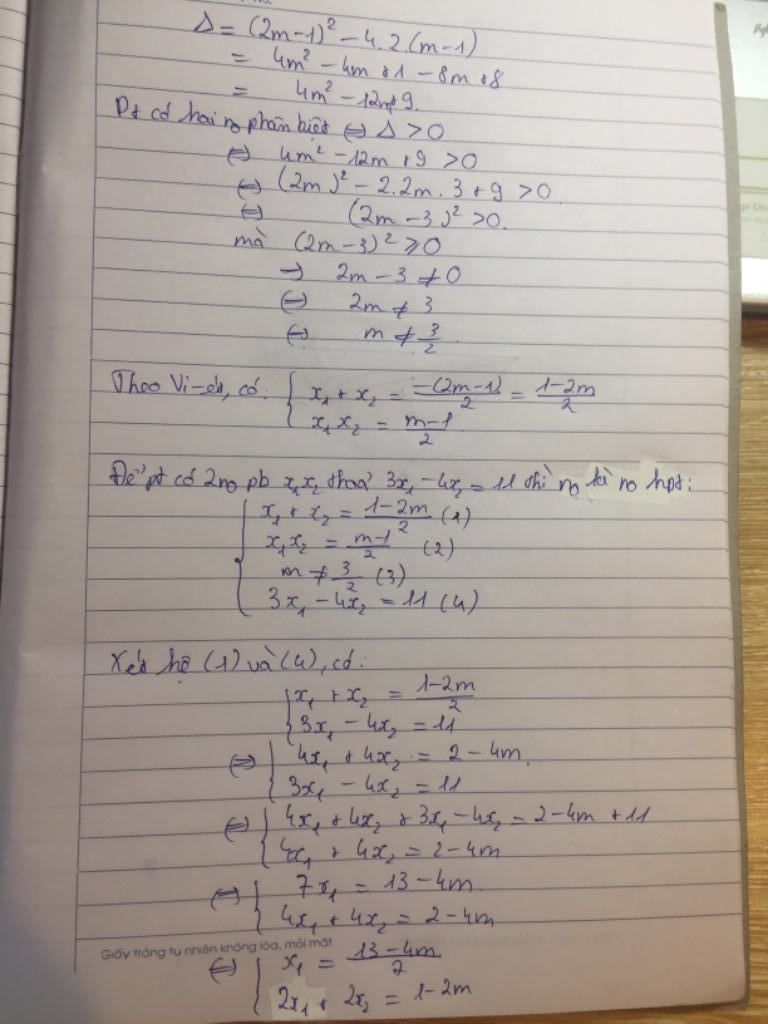 Δ = (2m-1)² - 4.2.(m-1)
= 4m² - 4m + 1 - 8m + 8
= 4m² - 12m + 9.
Pt có hai no phân biệt ⇔ Δ > 0
⇔ 4m² - 12m + 9 > 0
⇔ (2m)² - 2.2m.3 + 9 > 0
⇔ (2m - 3)² > 0.
mà (2m - 3)² ≥ 0
→ 2m - 3 ≠ 0
⇔ 2m ≠ 3
⇔ m ≠ 3/2
Theo Vi-ét, có: { x₁ + x₂ = -(2m-1)/2 = 1-2m/2
x₁x₂ = m-1/2
Để pt có 2 no pb x₁x₂ thoả 3x₁ - 4x₂ = 11 thì no là no hpt:
{ x₁ + x₂ = 1-2m/2 (1)
x₁x₂ = m-1/2 (2)
m ≠ 3/2 (3)
3x₁ - 4x₂ = 11 (4)
Xét hệ (1) và (4), có:
{ x₁ + x₂ = 1-2m/2
3x₁ - 4x₂ = 11
⇔ { 4x₁ + 4x₂ = 2 - 4m
3x₁ - 4x₂ = 11
⇔ { 4x₁ + 4x₂ + 3x₁ - 4x₂ = 2 - 4m + 11
4x₁ + 4x₂ = 2 - 4m
⇔ { 7x₁ = 13 - 4m
4x₁ + 4x₂ = 2 - 4m
Giấy trắng tự nhiên không lóa, mỏi mắt
⇔ { x₁ = 13-4m/7
2x₁ + 2x₂ = 1 - 2m